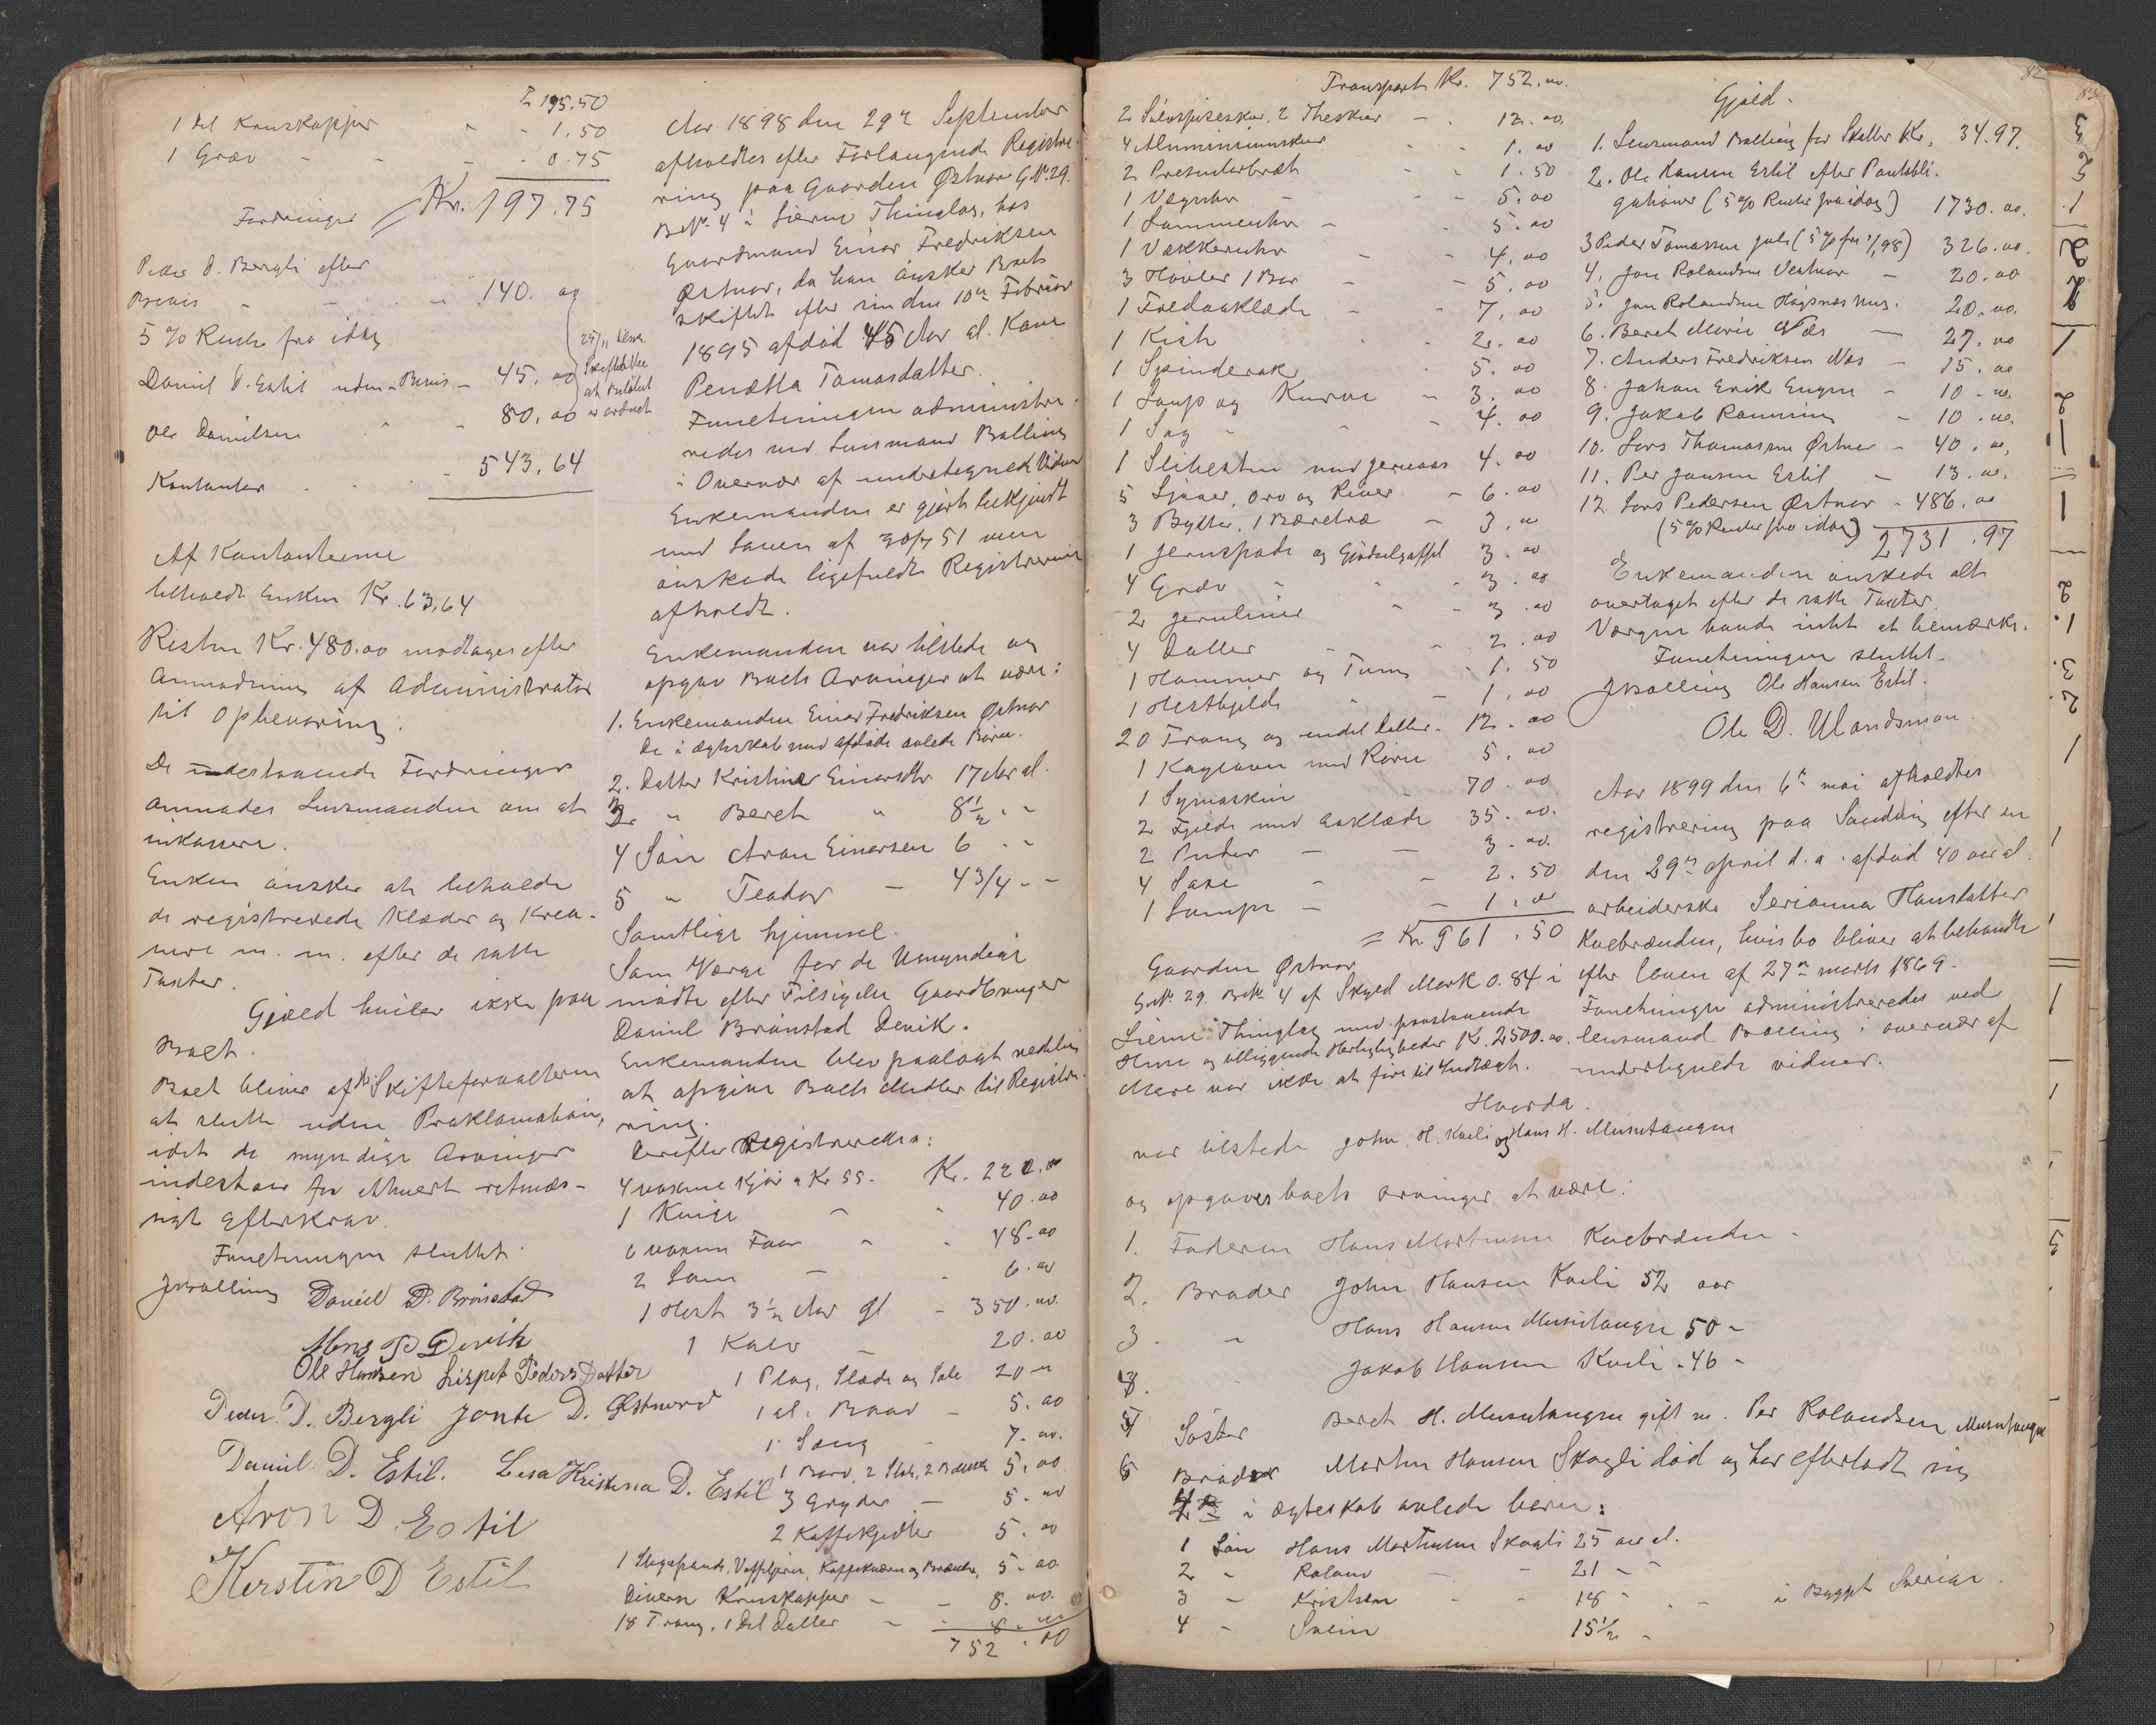 Z 195.50
1 Del Kruskopper - - 1.50
1 Grev - - - 0.75
Kr. 197.75
Fordringer
Peder D. Bergli efter
Bevis - - - 140.00
5 % Rente fra idag
Daniel D. Estil uden Bevis - 45.00
Ole Danielsen - - 80.00
Kontanter - - - 543,64
Af Kontanterne
beholdt Enken Kr. 63,64
Resten Kr. 480.00 modtages efter
Anmodning af Administrator
til Opbevaring.
De udestaaende Fordringer
anmodes Lensmanden om at
inkassere.
Enken ønsker at beholde
de registrerede Klæder og Krea-
turer m. m. efter de satte
Taxter.
Gjæld hviler ikke paa
Boet.
Boet bliver af Skifteforvalteren
at slutte uden Proklamation,
idet de myndige Arvinger
indestaar for ethvert retmæs-
sigt Efterkrav.
Forretningen sluttet.
JBolling Daniel D. Brønstad
Mons P Devik
Ole Hansen Lispet Peders Datter
Peder. D. Bergli Jonte D. Østnord
Daniel. D. Estil. Lesa Kristina D. Estil
Aron D. Estil
Kerstin D Estil
Aar 1898 den 29de September
afholdtes efter Forlangende Registre-
ring paa Gaarden Østnor G.No. 29.
B.No. 4 i Lierne Thinglag, hos
Gaardmand Einar Fredriksen
Østnor, da han ønsker Boet
skiftet efter sin den 10de Februar
1895 afdød 45 Aar gl. Kone
Penætta Tomasdatter.
Forretningen administre-
redes ved Lensmand Bolling
i Overvær af undertegnede Vidner
Enkemanden er gjort bekjendt
med Loven af 30/7 51 men
ønskede ligefuldt Registrering
afholdt.
Enkemanden var tilstede og
opgav Boets Arvinger at være:
1. Enkemanden Einar Fredriksen Østnor
De i Ægteskab med afdøde avlede Børn.
2. Datter Kristine Einarsdtr 17 Aar gl.
3. " Beret " 8 1/2 " "
4 Søn Aron Einarsen 6 " "
5 " Teodor - 4 3/4 - -
Samtlige hjemme.
Som Værge for de Umyndige
mødte efter Tilsigelse Gaardbruger
Daniel Brønstad Devik.
Enkemanden blev paalagt
at opgive Boets Midler til Registre-
ring.
Derefter Registreredes:
4 voxne Kjør a Kr 55. Kr. 220.00
1 Kvige - - 40.00
6 voxne Faar - - 48.00
2 Lam - - 6.00
1 Hest 3 1/2 Aar gl - 350.00
1 Kalv - 20.00
1 Plog, Slæde og Sele 20 -
1 gl. Baad - 5.00
1 Seng - 7.00
1 Bord, 2 Stole, 2 Bænke 5,00
3 Gryder - 5.00
2 Kaffekjedler 5.00
1 Stegepande, Vaffeljern, Kaffekværn og Brænder, 5.00
Diverse Kruskopper - - 8.00
18 Traug, 1 Del Daller - - 8.00
752.00
Transport Kr. 752.00
2 Sølvspiseskeer, 2 Theskeer - 12.00
4 Aluminiumskeer - - 1.00
2 Presenterbræt - - 1.50
1 Væguhr - - 5.00
1 Lommeuhr - - 5.00
1 Vækkeruhr - - 4.00
3 Høvler 1 Bor - - 5.00
1 Foldaaklæde - - 7.00
1 Kiste - - 2.00
1 Spinderok - 5.00
1 Laup og Kurve - 3.00
1 Sag - - 4.00
1 Slibesten med Jernaas 4.00
5 Ljaaer, Orv og River - 6.00
3 Bytter, 1 Bæretræ - 3.00
1 Jernspade og Gjødselgaffel 3.00
4 Grev - - 3.00
2 Jernlinier - - 3.00
4 Daller - - 2.00
1 Hammer og Tang - 1.50
1 Hestbjelde - - 1.00
20 Traug og endel Daller - 12.00
1 Kageovn med Rører 5.00
1 Symaskin - 70.00
2 Fjelde med Aaklæde 35.00
2 Puder - - 3.00
4 Saxe - - 2.50
1 Lampe - - 1.00
= Kr. 961.50
Gaarden Østnor
G.No. 29. B.No. 4 af Skyld Mark 0.84 i
Lierne Thinglag med paastaaende
Huse og tilliggende Herligheder Kr. 2500.00
Mere var ikke at føre til Indtægt.
Gjæld.
1. Lensmand Bolling for Skatter Kr. 34.97.
2. Ole Hansen Estil efter Pantobli-
gationer (5 % Renter fra idag) 1730.00.
3 Peder Tomassen Jule (5 % fra 1/1 98) 326.00
4. Jon Rolandsen Vestnor - 20.00
5. Jon Rolandsen Høgsnes Mus. 20.00.
6. Beret Marie Næs - 27.00
7. Anders Fredriksen Nos - 15.00
8. Johan Erik Engen - 10.00
9. Jakob Rønning - 10.00.
10. Lars Thomassen Østnor - 40.00,
11. Per Jonsen Estil - 13.00.
12. Lars Pedersen Østnor - 486.00
(5 % Renter fra idag) 2731.97
Enkemanden ønskede alt
overtaget efter de satte Taxter
Værgen havde intet at bemærke.
Forretningen sluttet.
JBolling Ole Hansen Estil.
Ole D. Ulandsmon
Aar 1899 den 6te mai afholdtes
registrering paa Sandvig efter en
den 29de april d. a. afdød 40 aar gl.
arbeiderske Serianna Hansdatter
Kvebrænden, hvis bo bliver at behandle
efter loven af 27de marts 1869.
Forretningen administreredes ved
lensmand Bolling i overvær af
undertegnede vidner.
Hvorda
var tilstede John H. Kveli og Hans H. Musutangen
og opgaves boets arvinger at være:
1. Faderen Hans Mortensen Kvebrænden -
2. Broder John Hansen Kveli 52 aar
3. - Hans Hansen Musutangen 50 -
Jakob Hansen Kveli - 46 -
5 Søster Beret H. Musutangen gift m. Per Rolandsen Musutangen
6 Broder Morten Hansen Skogli død og har efterladt sig
4 i ægteskab avlede børn:
1 Søn Hans Mortensen Skogli 25 aar gl.
2 - Roland - - 21 -
3 - Kristian - - 18 - - - i Bygget Sverige.
4 - Svein 15 1/2 -